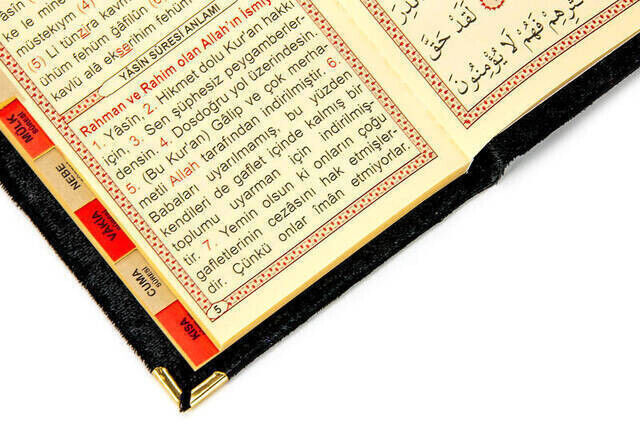 ke ie mine
müstekıym (4)
(5) Lİ tünzira kavmen
ühüm fehüm ğâfilûn
kavlü alâ ekserihim fehüm
YÂSİN SÛRESİ ANLAMI
Rahman ve Rahim olan Allah'ın ismiy
1. Yâsîn. 2. Hikmet dolu Kur'an hakkı
için, 3. Sen şüphesiz peygamberler-
densin, 4. Dosdoğru yol üzerindesin.
5. (Bu Kur'an) Gâlip ve çok merha-
metli Allah tarafından indirilmiştir. 6.
Babaları uyarılmamış, bu yüzden
kendileri de gaflet içinde kalmış bir
toplumu uyarman için indirilmiş-
tir. 7. Yemin olsun ki onların çoğu
gafletlerinin cezasını hak etmişler-
dir. Çünkü onlar îmân etmiyorlar.
5
لَقَدْ حَقَّ
فَهُمْ لَا يُؤْمِنُونَ
MÜLK
SÛRESİ
NEBE
VÂKIA
CUMA
SÛRESİ
KISA